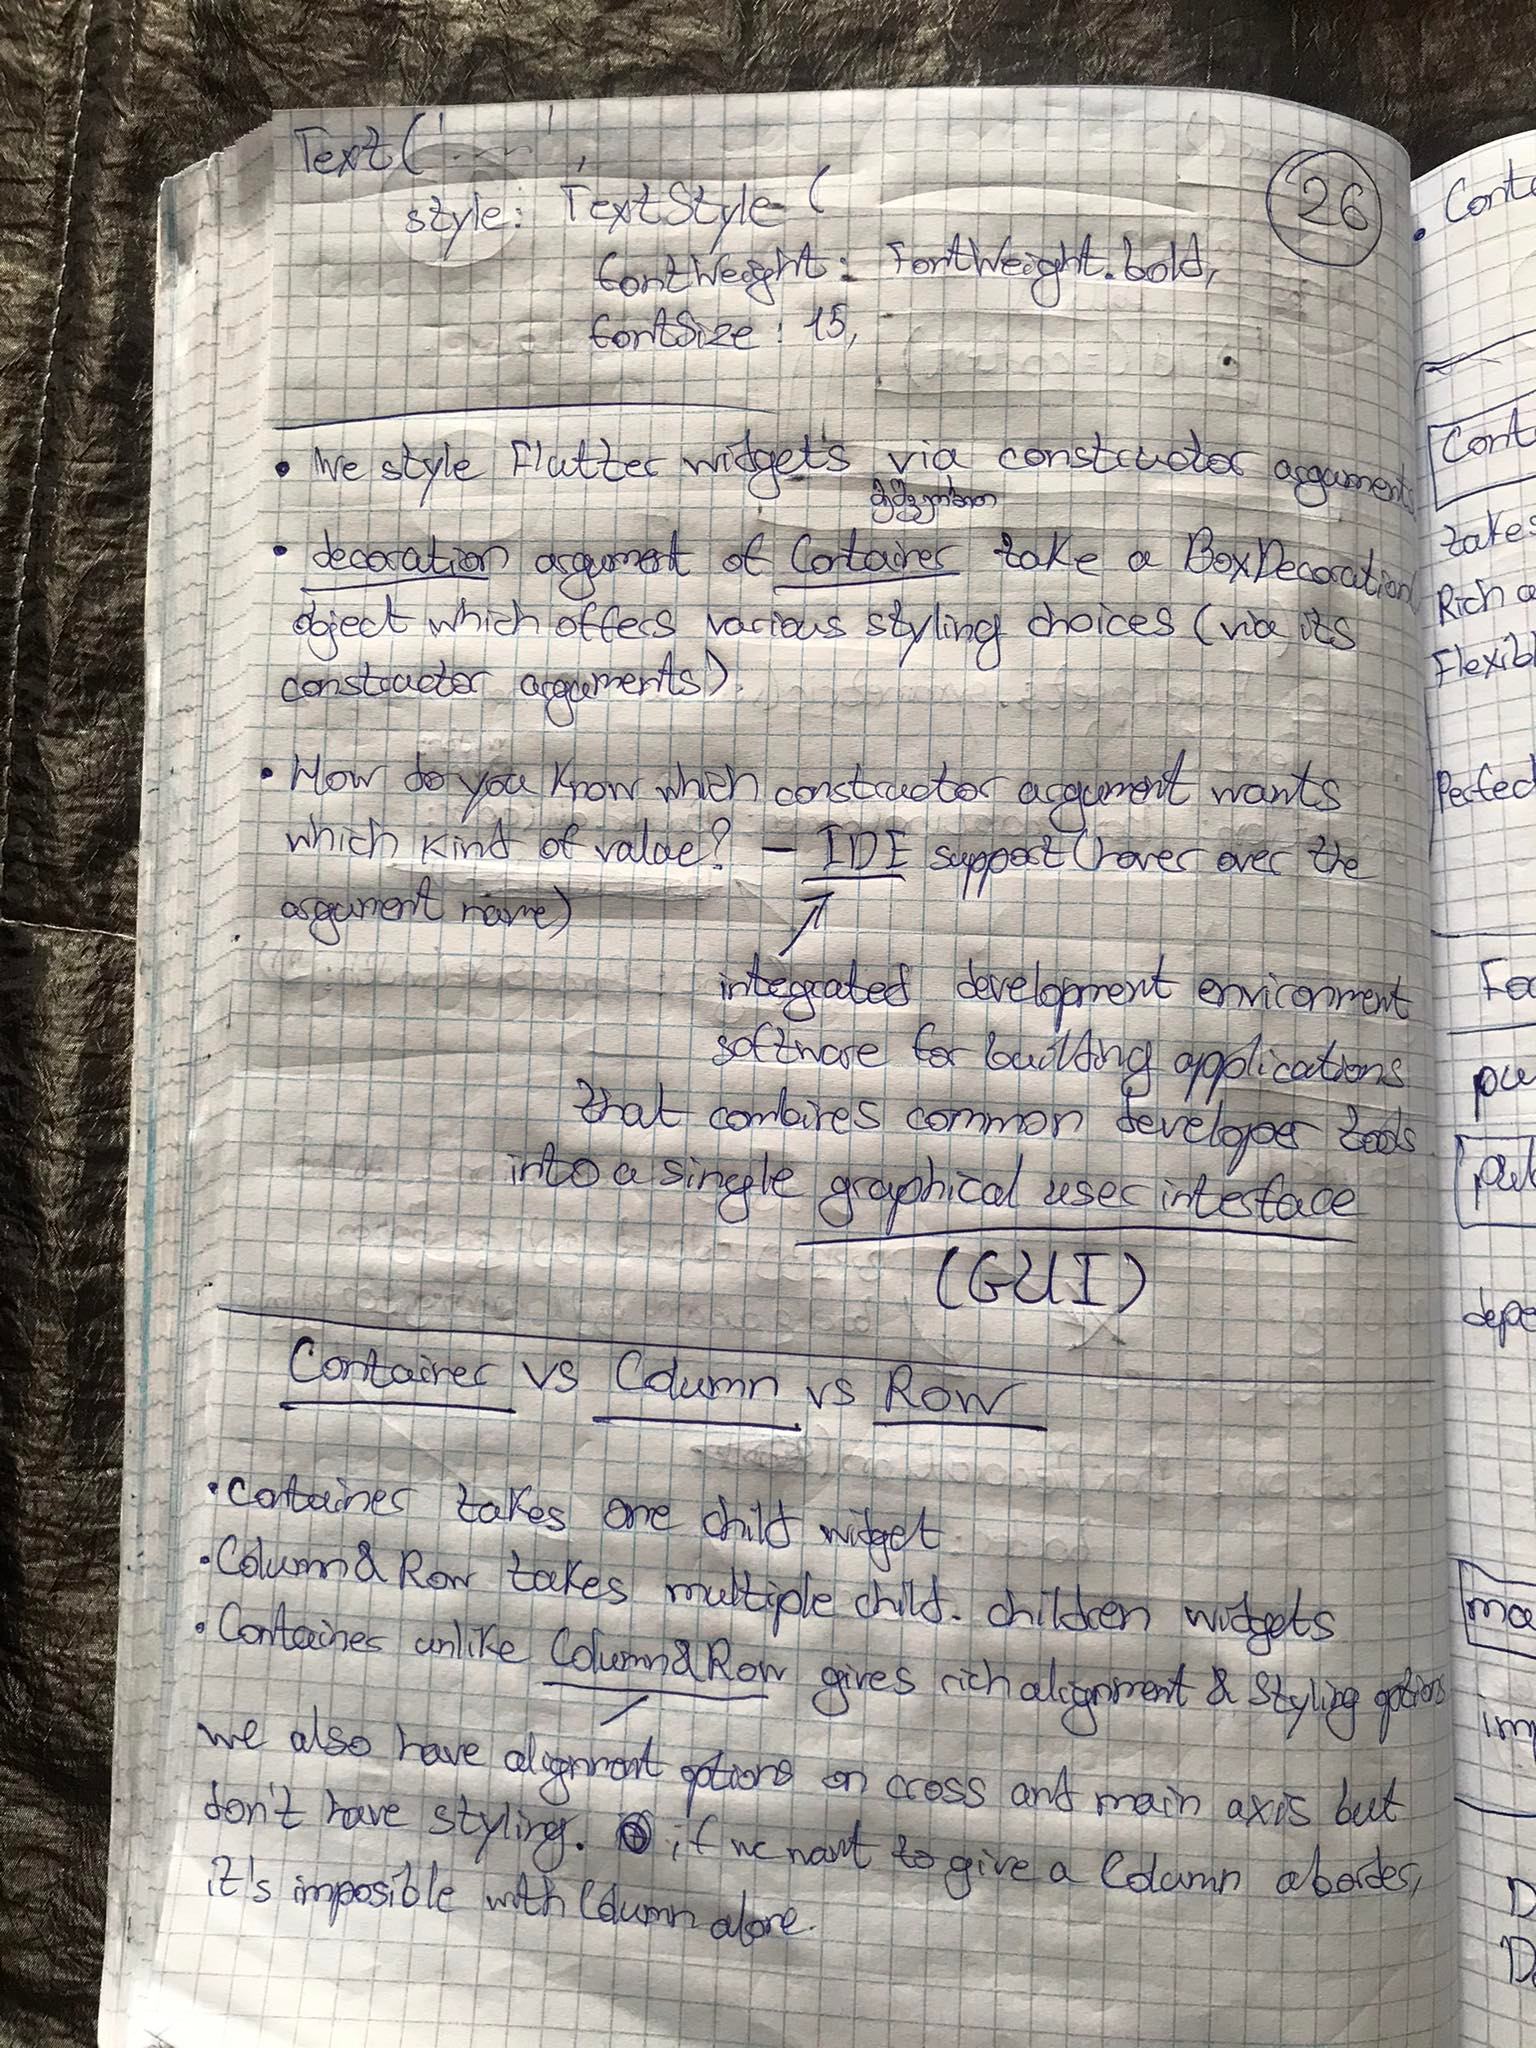 Text('......',
26
style: TextStyle (
fontWeight: FontWeight.bold,
fontSize: 15,
• We style Flutter widgets via constructor arguments
• decoration argument of Container take a BoxDecoration
object which offers various styling choices (via its
constructor arguments).
• How do you know which constructor argument wants
which kind of value? - IDE support (hover over the
argument name)
integrated development environment
software for building applications
that combines common developer tools
into a single graphical user interface
(GUI)
Container vs Column vs Row
• Container takes one child widget
• Column & Row takes multiple child. children widgets
• Container unlike Column & Row gives rich alignment & styling options
we also have alignment options on cross and main axis but
don't have styling. if we want to give a Column a border,
it's imposible with Column alone.
• Conta
Conta
takes
Rich a
Flexibl
Perfec
pu
depe
ma
im
D
D